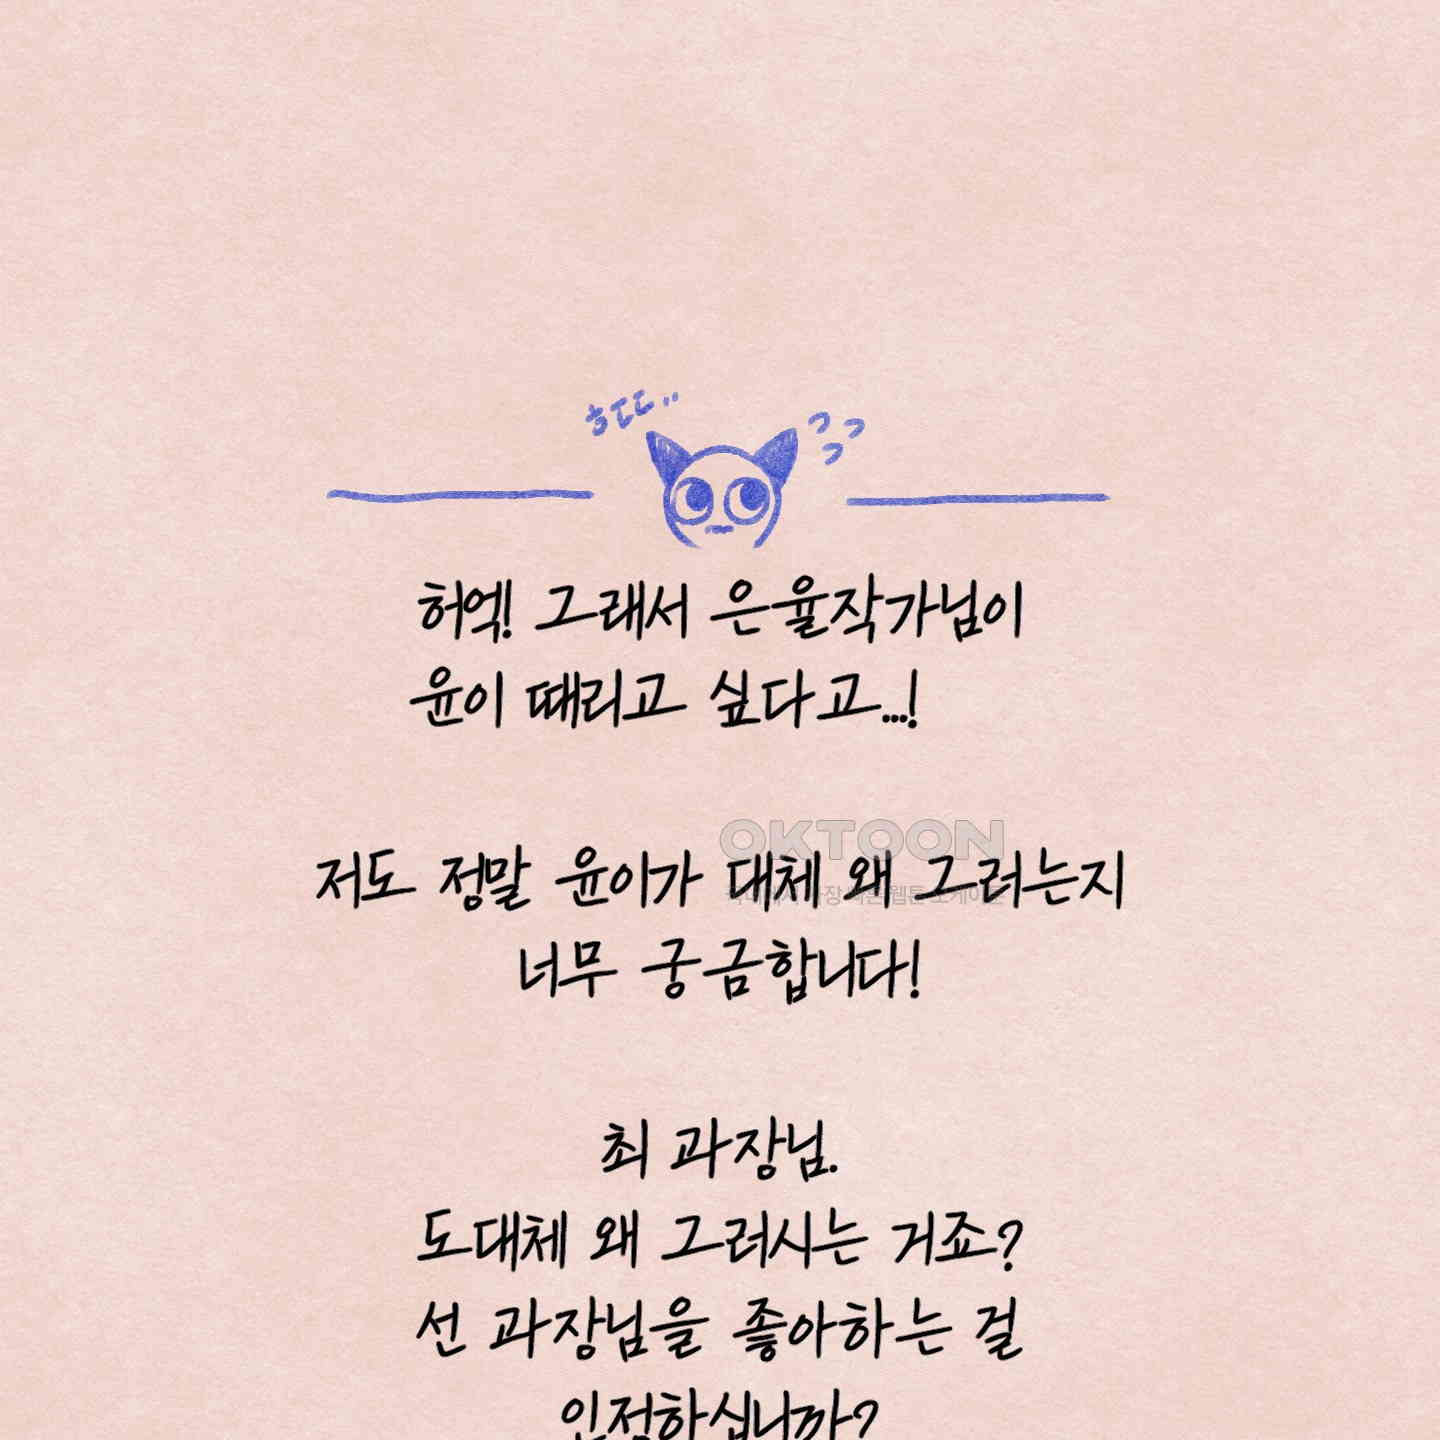 ㅎㄷㄷ..
ㄱㄱㄱ
허억! 그래서 은율작가님이
윤이 때리고 싶다고...!
OKTOON
저도 정말 윤이가 대체 왜 그러는지
너무 궁금합니다!
최 과장님.
도대체 왜 그러시는 거죠?
선 과장님을 좋아하는 걸
인정하십니까?